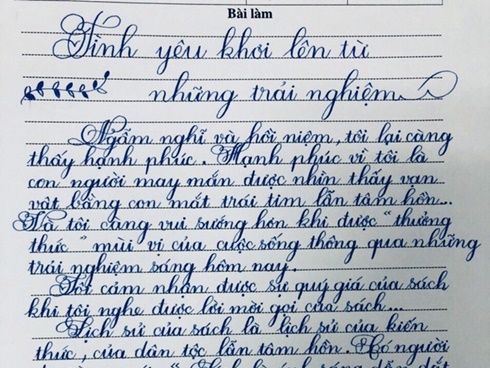 Bài làm
Tình yêu khơi lên từ
những trải nghiệm
Ngẫm nghĩ và hồi niệm, tôi lại càng
thấy hạnh phúc. Hạnh phúc vì tôi là
con người may mắn được nhìn thấy vạn
vật bằng con mắt trái tim lẫn tâm hồn...
Và tôi càng vui sướng hơn khi được "thưởng
thức" mùi vị của cuộc sống thông qua những
trải nghiệm sáng hôm nay.
Tôi cảm nhận được sự quý giá của sách
khi tôi nghe được lời mời gọi của sách...
Lịch sử của sách là lịch sử của kiến
thức, của dân tộc lẫn tâm hồn. Có người